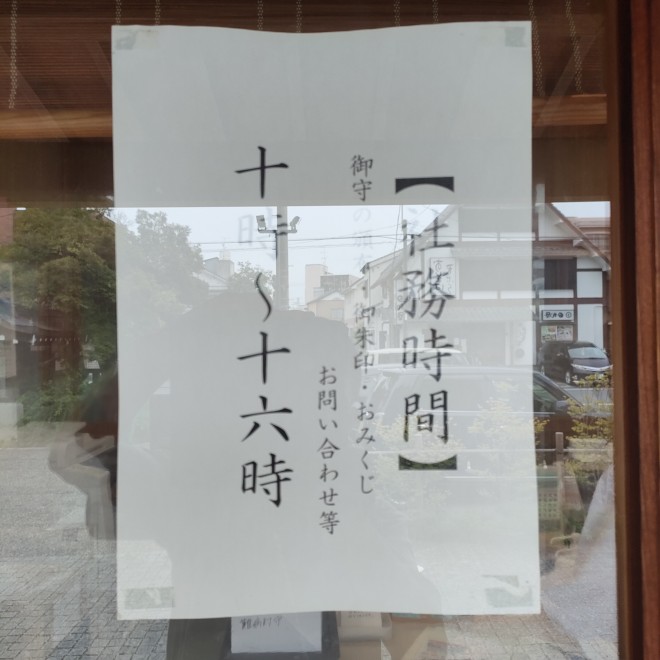 【社務時間】
御守の頒布・御朱印・おみくじ
お問い合わせ等
十時〜十六時